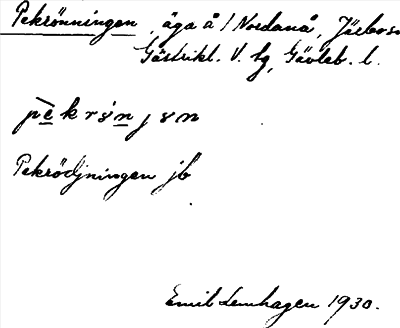 Pekrönningen, äga å / Nordanå, Järbo sn
Gästrikl. V. tg, Gävleb. l.
pèkrönjön
Pekrödjningen jb
Emil Lenhagen 1930.